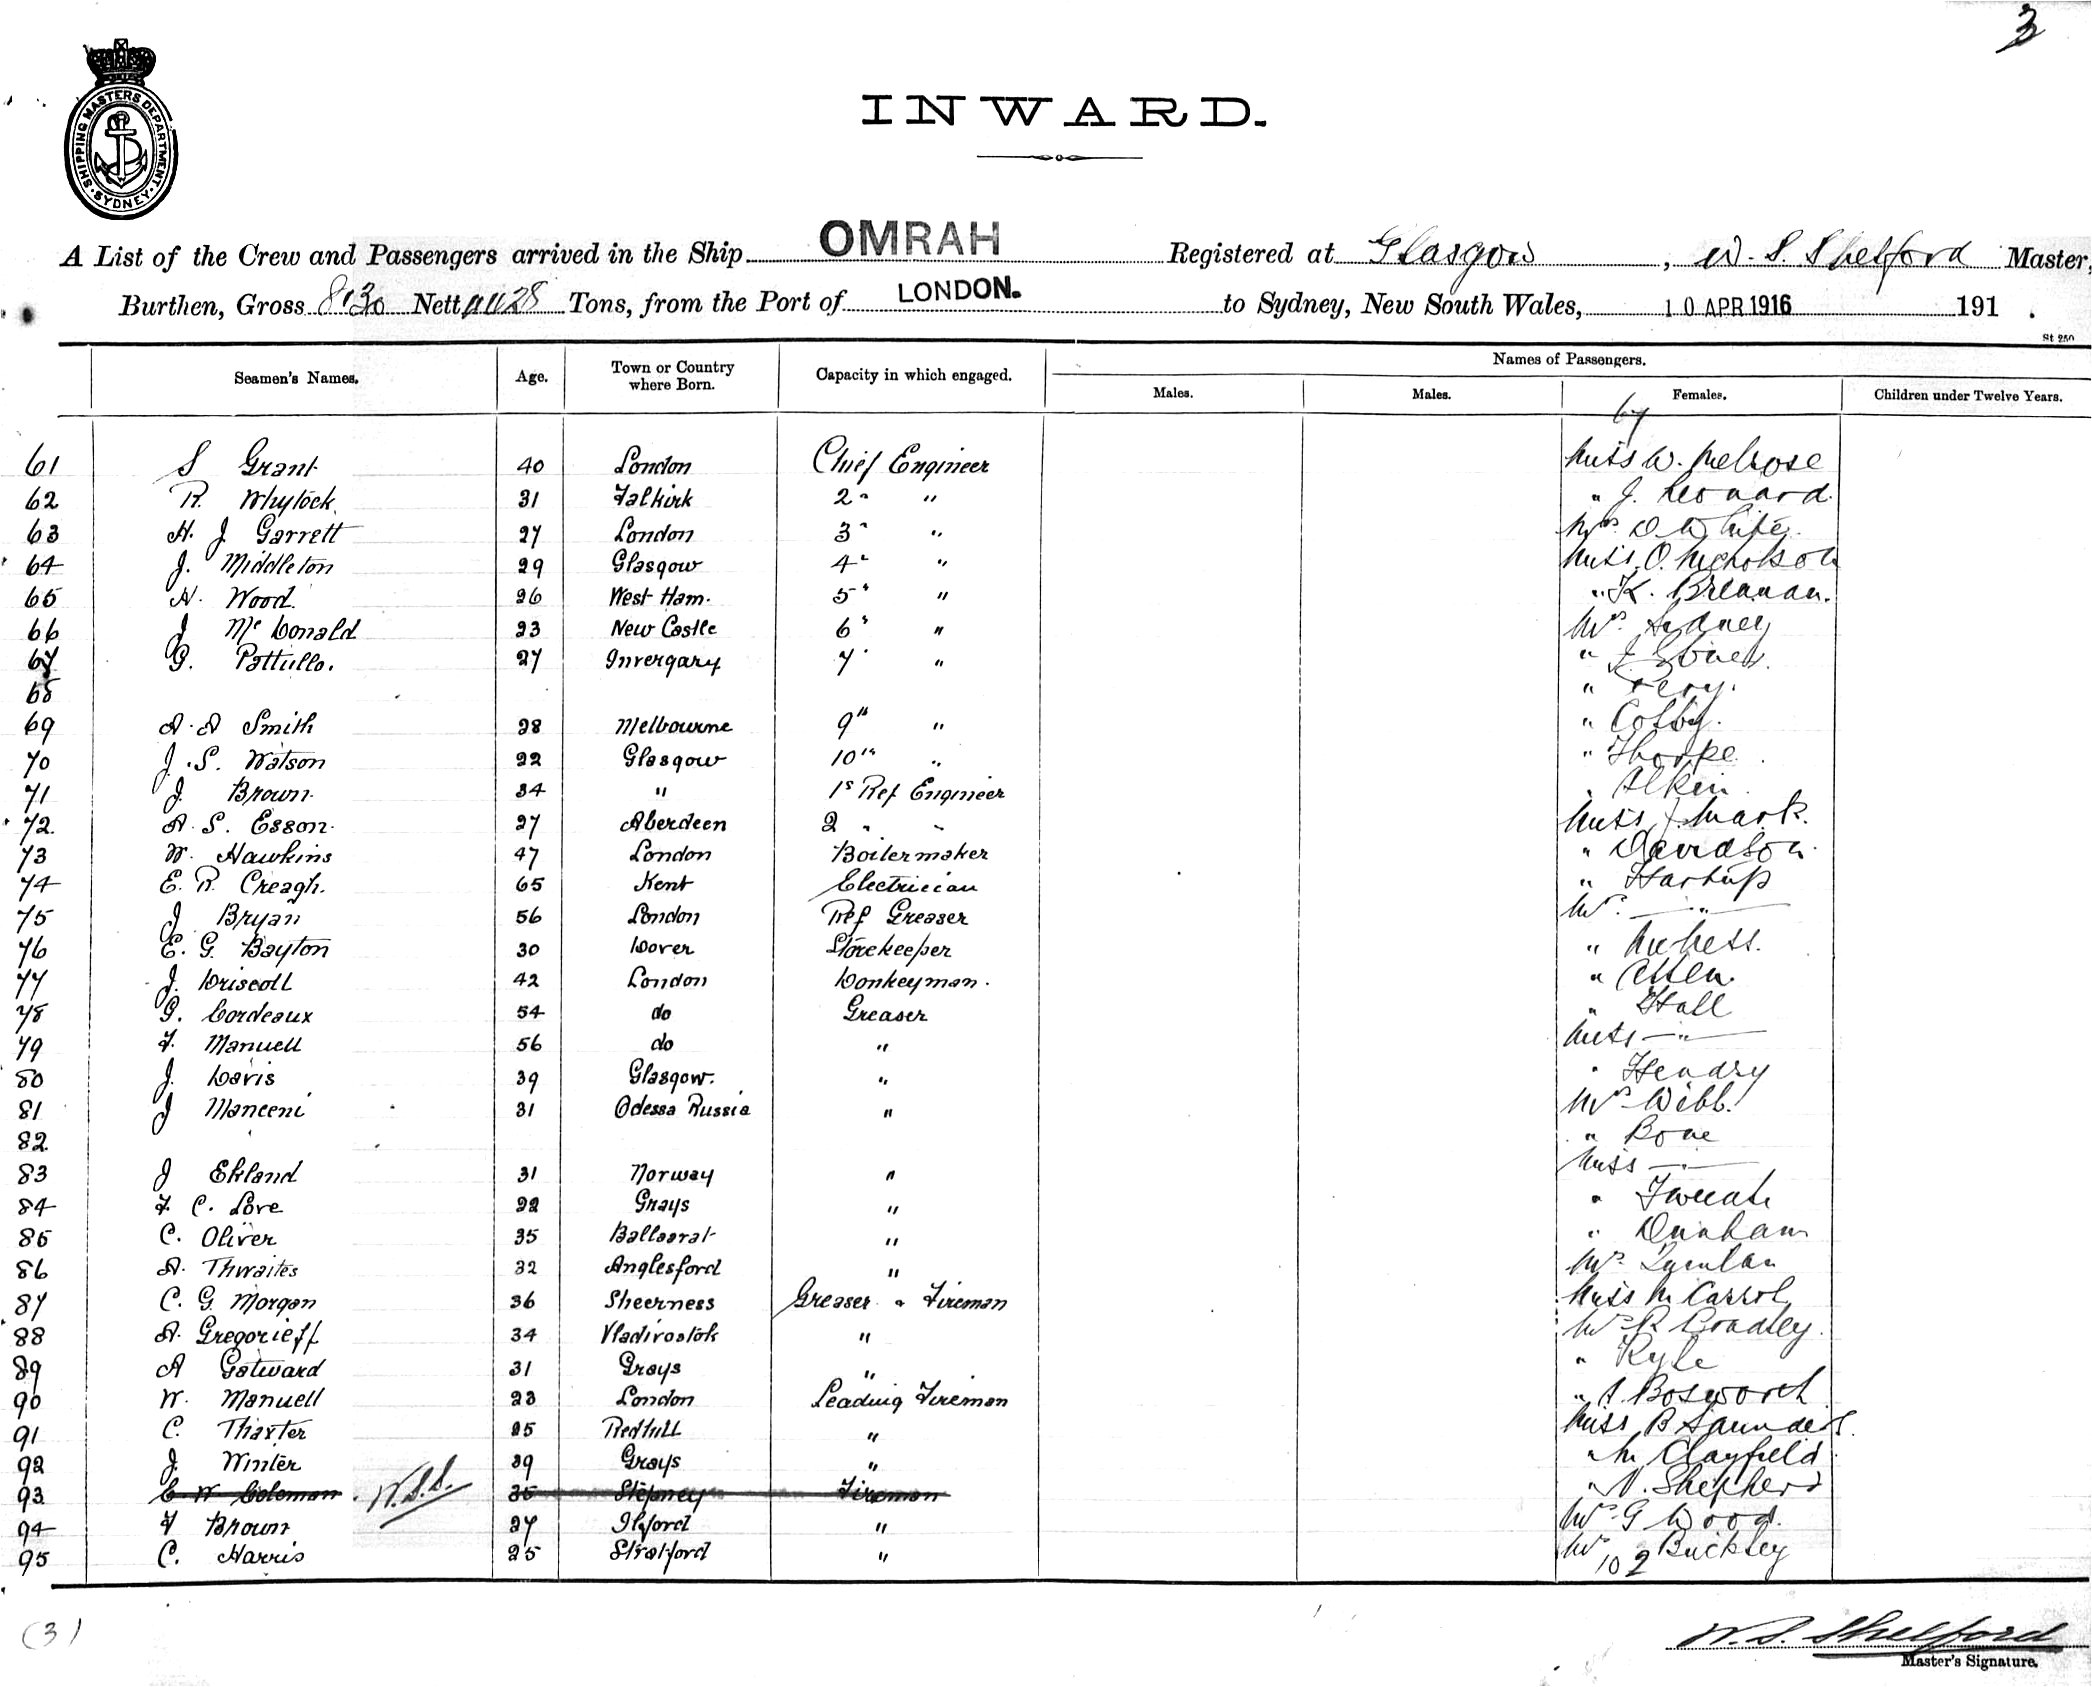 3
SHIPPING MASTERS DEPARTMENT · SYDNEY ·
INWARD.
A List of the Crew and Passengers arrived in the Ship OMRAH Registered at Glasgow, W. S. Shelford Master,
Burthen, Gross 8130 Nett Tons, from the Port of LONDON. to Sydney, New South Wales, 10 APR 1916 191 .
St 250
Seamen's Names. Age. Town or Country where Born. Capacity in which engaged. Names of Passengers.
Males. Males. Females. Children under Twelve Years.
67
61 S Grant 40 London Chief Engineer Miss W. Melrose
62 R. Whylock 31 Falkirk 2" " " J. Leonard
63 H. J Garrett 27 London 3" " Mrs D White.
64 J. Middleton 29 Glasgow 4" " Miss O. Nicholson
65 H. Wood. 26 West Ham. 5" " " K. Brennan.
66 J McDonald 23 New Castle 6" " Mrs. Sydney
67 G. Pattullo. 27 Invergary 7" " " J. Jones.
68 "
69 A. A Smith 28 Melbourne 9th " " Colby.
70 J. S. Watson 22 Glasgow 10th " " Thorpe
71 J. Brown 34 " 1s Ref Engineer " Alkin
72. A. S. Esson. 27 Aberdeen 2 " " Miss J. Mark.
73 W. Hawkins 47 London Boilermaker " Davidson
74 E. R. Creagh. 65 Kent Electrician " Hartup
75 J Bryan 56 London Ref Greaser Mrs. — " —
76 E. G. Bayton 30 Dover Storekeeper "
77 J. Driscoll 42 London Donkeyman. " Allen.
78 G. Cordeaux 54 do Greaser " Hall
79 F. Manuell 56 do " Miss — " —
80 J. Davis 39 Glasgow. " " Hendry
81 J Manceni 31 Odessa Russia " Mrs Webb.
82. " Bone
83 J Ekland 31 Norway " Miss — " —
84 F. C. Love 22 Grays " "
85 C. Oliver 35 Ballaarat " " Dunham
86 A. Thwaites 32 Anglesford " Mrs. Quinlan
87 C. G. Morgan 36 Sheerness Greaser & Fireman Miss M Carrol
88 A. Gregorieff 34 Vladivostok " Mrs R Bradley.
89 A Gotward 31 Grays " " Kyle
90 W. Manuell 23 London Leading Fireman " A Bosworth
91 C. Thaxter 25 Redhill " Miss B Saunders.
92 J. Winter 39 Grays " " M Clayfield
93 C W Coleman. W.S.S. 35 Stepney Fireman " N. Shepherd
94 F Brown 27 Ilford " Mrs. G Wood.
95 C. Harris 25 Stratford " Mrs Buckley
102
(3)
W. S. Shelford
Master's Signature.